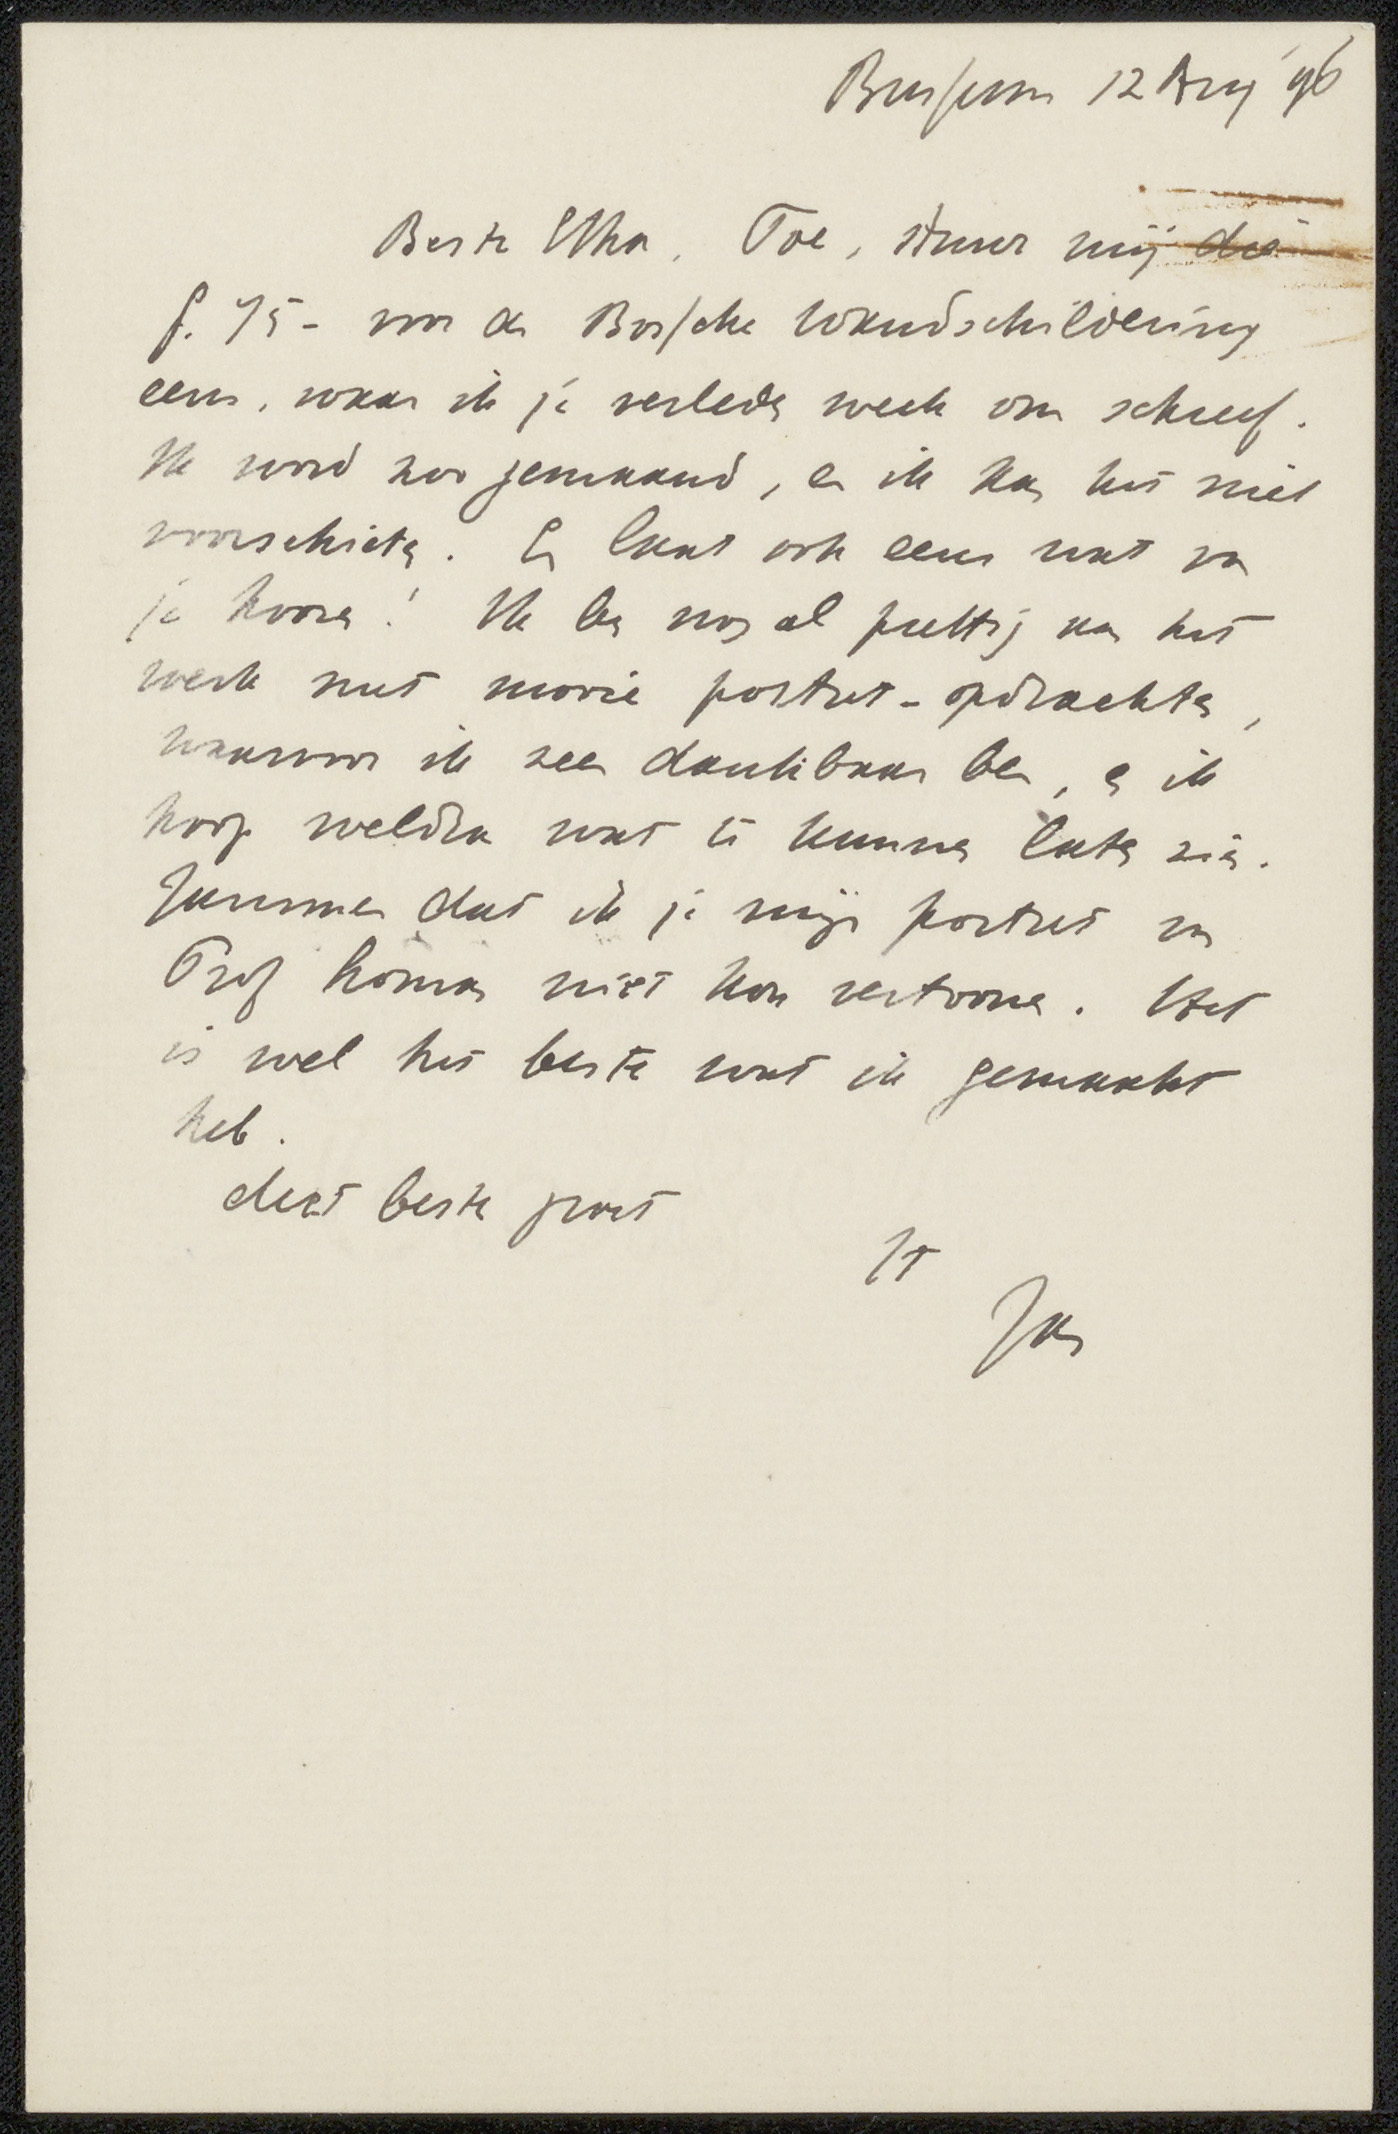 Bussum 12 Aug '96
Beste Ekka. Toe, stuur mij die
f. 75 - voor de Bossche wandschildering
eens, waar ik je verleden week om schreef.
Ik word zoo gemaand, en ik kan het niet
voorschieten. En laat ook eens wat van
je hooren! Ik ben nog al prettig aan het
werk met mooie portret-opdrachten,
waarvoor ik zeer dankbaar ben, en ik
hoop weldra wat te kunnen laten zien.
Jammer dat ik je mijn portret van
Prof niet kon vertoonen. Het
is wel het beste wat ik gemaakt
heb.
Met beste groet
tt
Jan